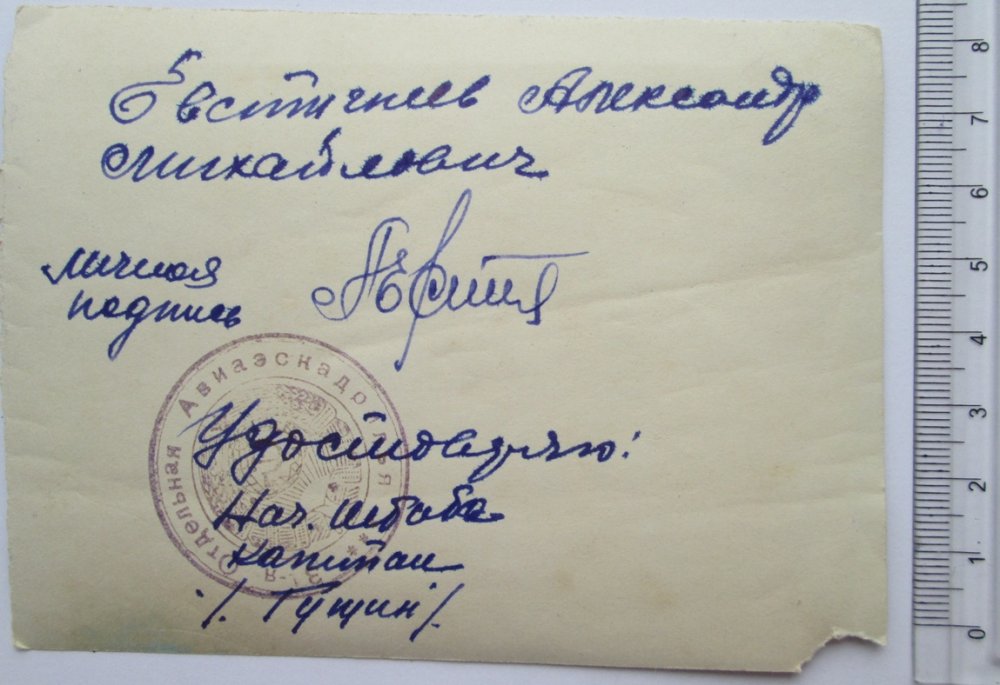 Евстигнеев Александр
Михайлович
личная
подпись
Отдельная Авиаэскадрилья
Удостоверяю:
Нач. штаба
капитан
/. Гущин /.
8
7
6
5
4
3
2
1
0